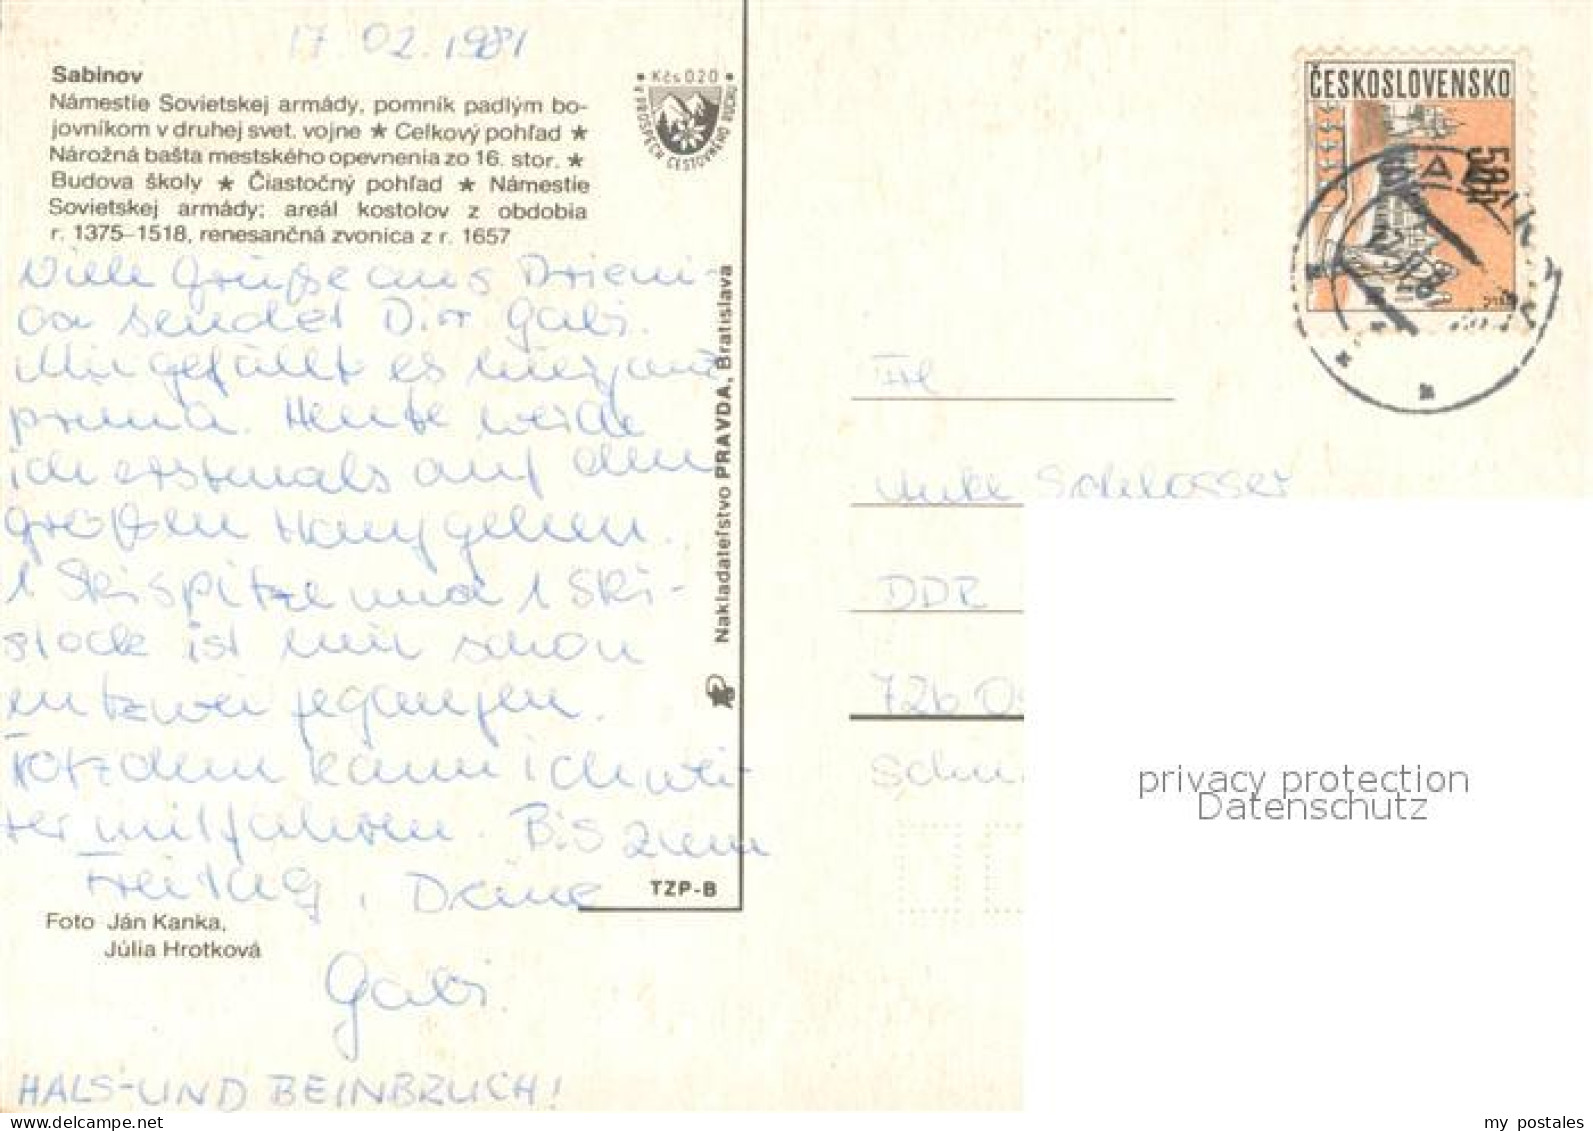 17 02.1981
Sabinov
Námestie Sovietskej armády, pomník padlým bo-
jovníkom v druhej svet. vojne ★ Celkový pohľad ★
Nárožná bašta mestského opevnenia zo 16. stor. ★
Budova školy ★ Čiastočný pohľad ★ Námestie
Sovietskej armády; areál kostolov z obdobia
r. 1375–1518, renesančná zvonica z r. 1657
Viele Grüße aus Drieni-
ca sendet Dir Gabi.
Mir gefällt es hier ganz
prima. Heute werde
ich erstmals auf den
großen Hang gehen.
1 Skispitze und 1 Ski-
stock ist mir schon
entzwei gegangen.
Trotzdem kann ich wei-
ter mitfahren. Bis zum
Freitag, Deine
Gabi.
HALS-UND BEINBRUCH!
Foto Ján Kanka,
Júlia Hrotková
• Kčs 0.20 •
V PROSPECH CESTOVNÉHO RUCHU
Nakladateľstvo PRAVDA, Bratislava
TZP-B
ČESKOSLOVENSKO
50h
Frl
Anke Schlosser
DDR
726 Os
Schu
privacy protection
Datenschutz
my postales